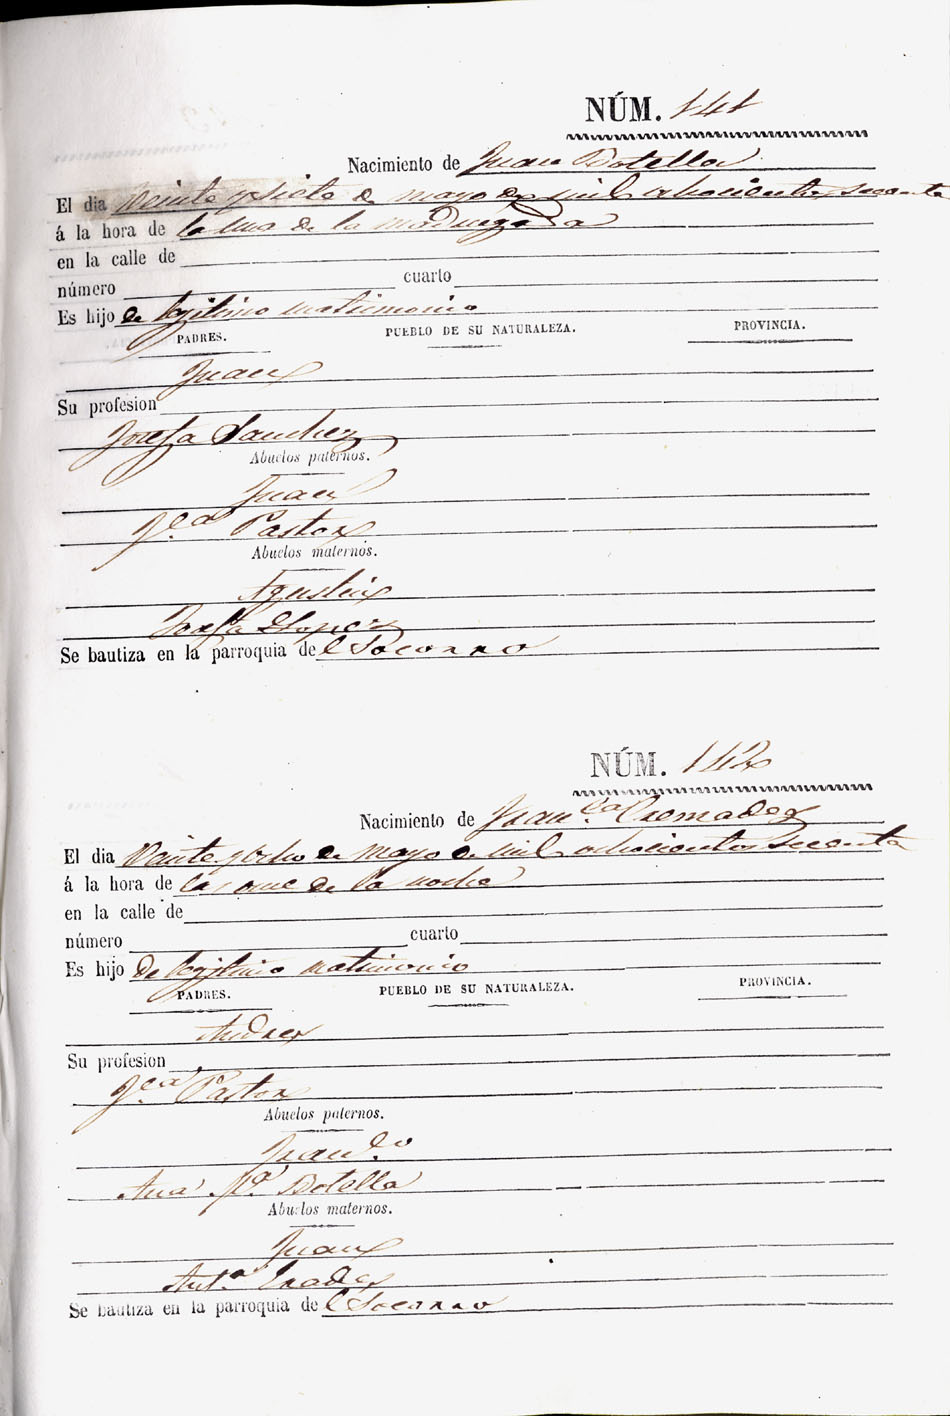 NÚM. 141
Nacimiento de Juan Botella
El dia veinte y siete de mayo de mil ochocientos sesenta
á la hora de la una de la madrugada
en la calle de
número cuarto
Es hijo de legitimo matrimonio
PADRES. PUEBLO DE SU NATURALEZA. PROVINCIA.
Juan
Su profesion
Josefa Sanchez
Abuelos paternos.
Juan
Pastor
Abuelos maternos.
Agustin
Josefa Lopez
Se bautiza en la parroquia de l Socorro
NÚM. 142
Nacimiento de Fran.ca Cremades
El dia veinte y ocho de mayo de mil ochocientos sesenta
á la hora de las once de la noche
en la calle de
número cuarto
Es hijo de legitimo matrimonio
PADRES. PUEBLO DE SU NATURALEZA. PROVINCIA.
Andres
Su profesion
Pastor
Abuelos paternos.
Fran.co
Ana M.a Botella
Abuelos maternos.
Juan
Ant.a Prades
Se bautiza en la parroquia de l Socorro